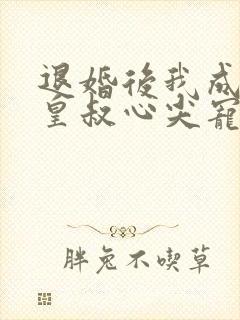 退婚後我成
皇叔心尖寵
胖兔不喫草